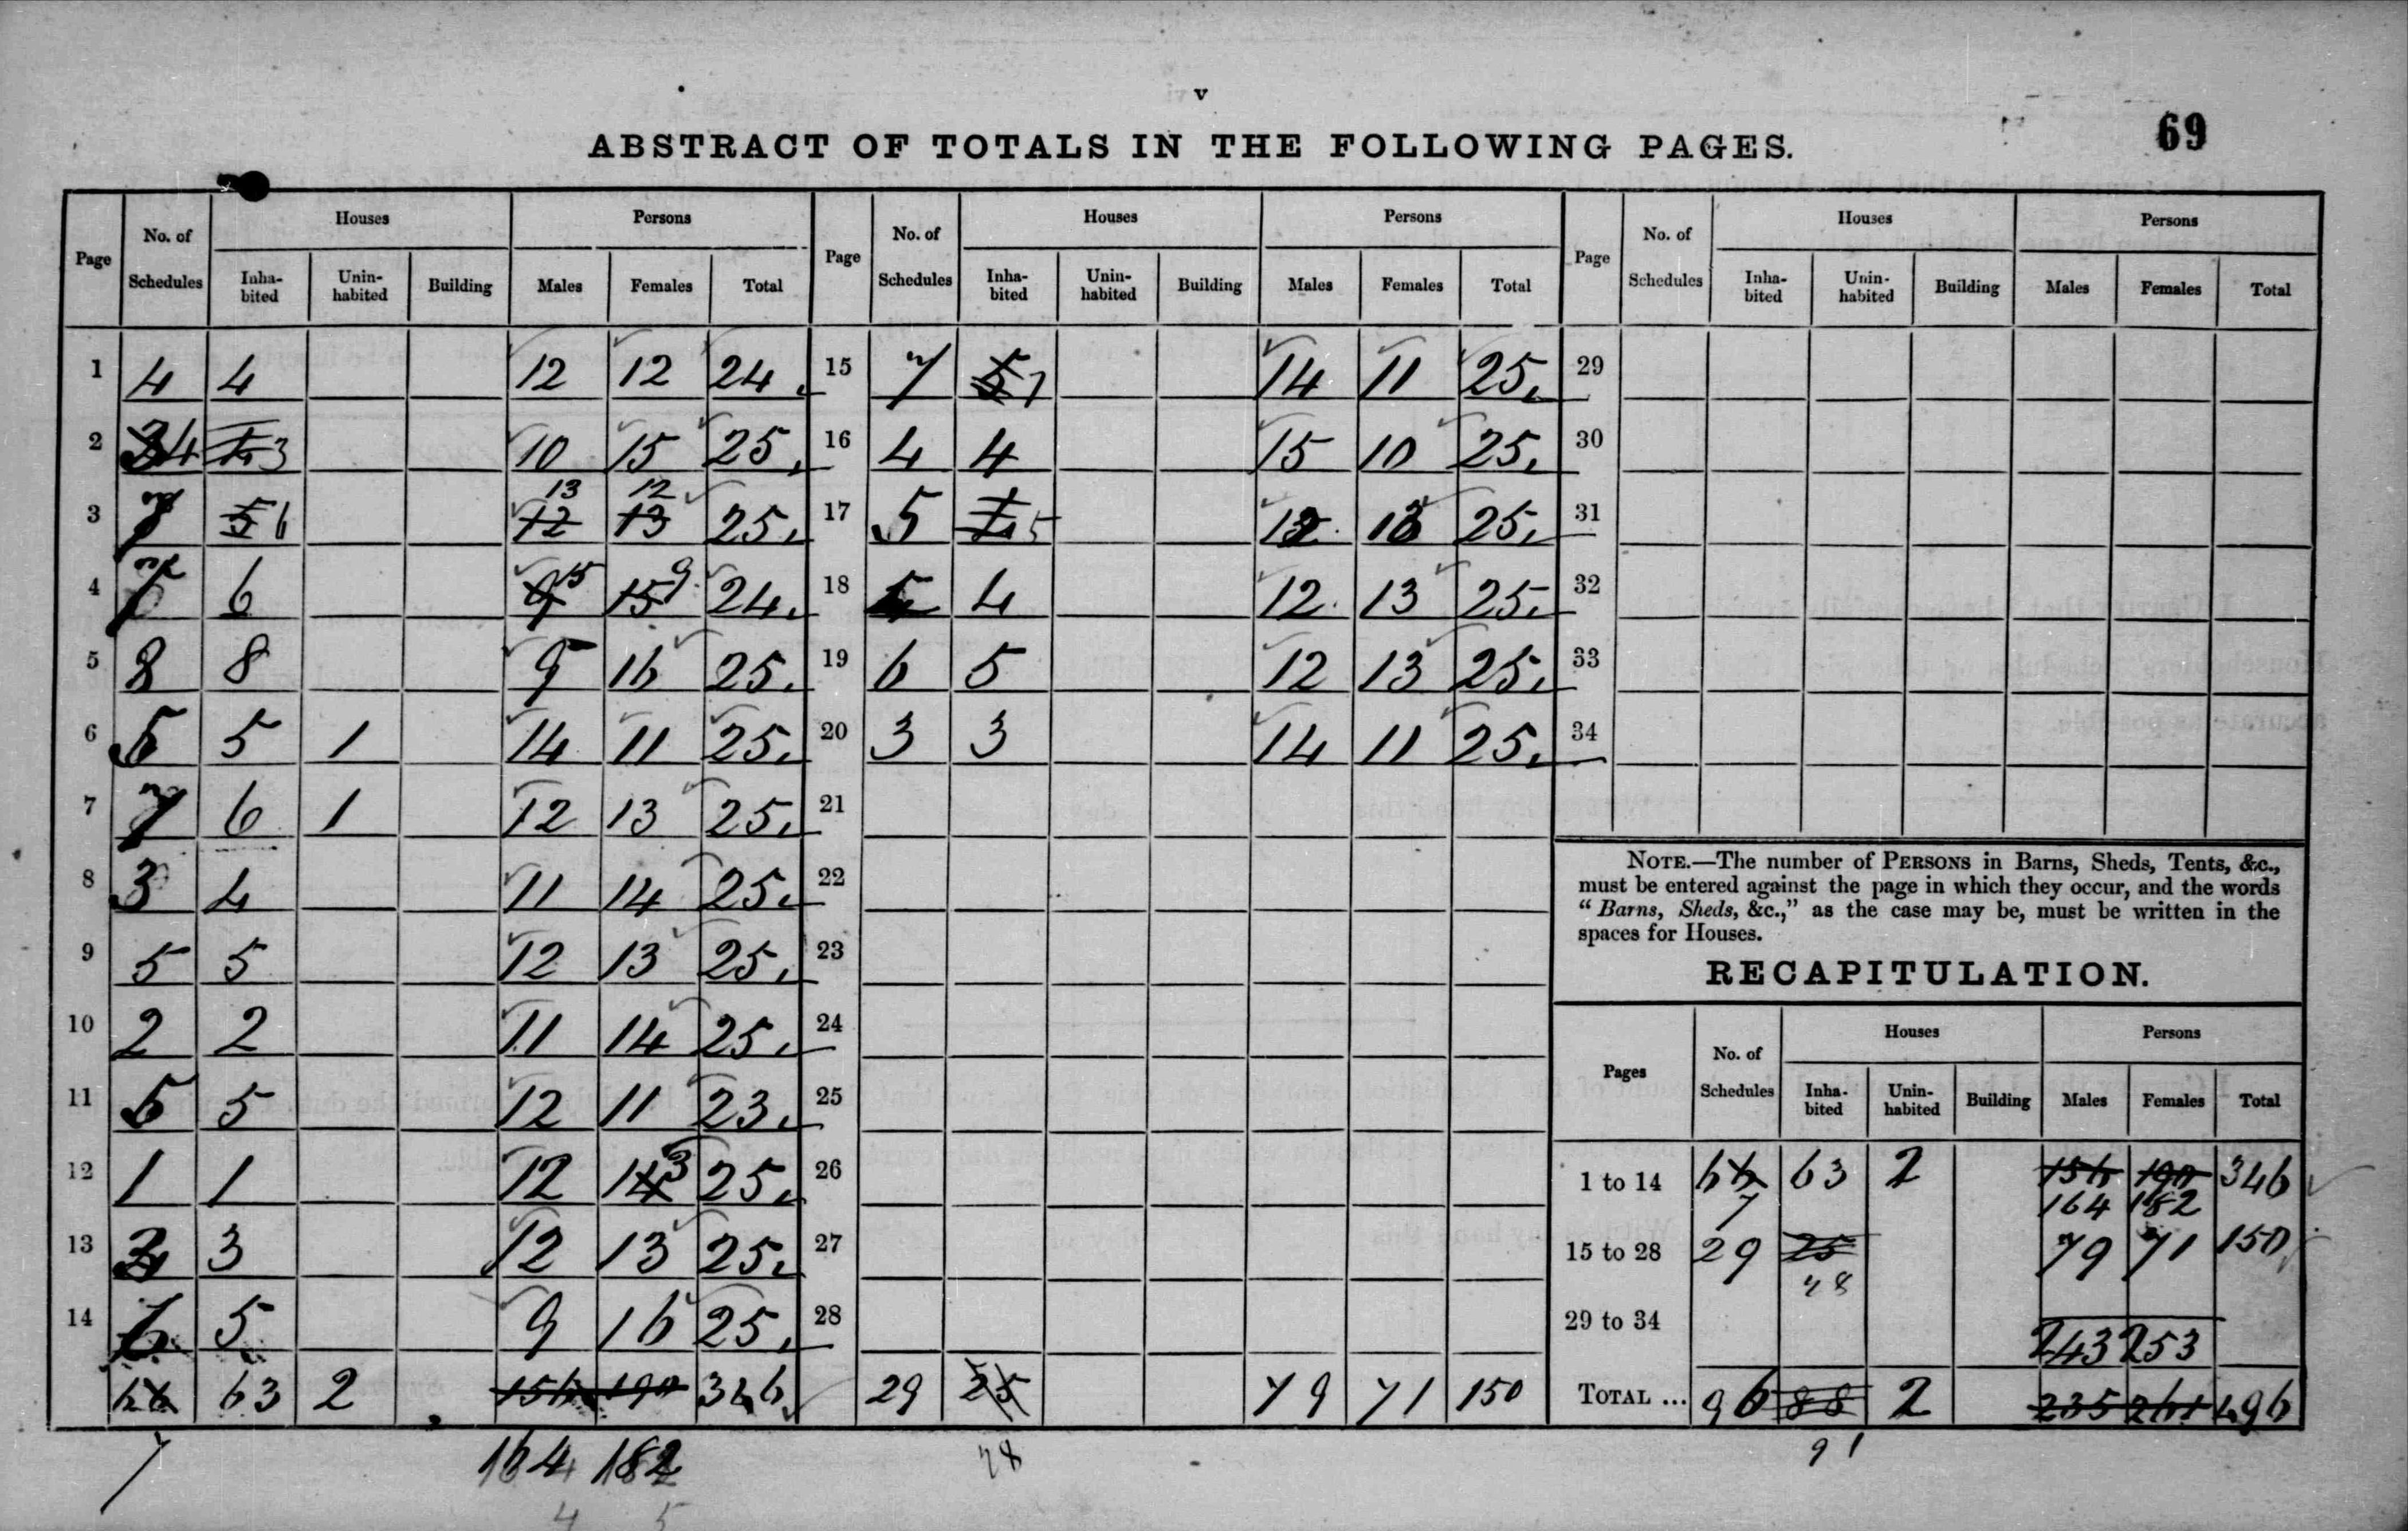 v
69
ABSTRACT OF TOTALS IN THE FOLLOWING PAGES.
Page No. of Schedules Houses Inha-bited Unin-habited Building Persons Males Females Total Page No. of Schedules Houses Inha-bited Unin-habited Building Persons Males Females Total Page No. of Schedules Houses Inha-bited Unin-habited Building Persons Males Females Total
1 4 4 12 12 24 15 7 5 7 14 11 25 29
2 3 4 4 3 10 15 25 16 4 4 15 10 25 30
13 12
3 7 5 6 12 13 25 17 5 4 5 12 13 25 31
4 7 6 9 15 15 9 24 18 4 12 13 25 32
5 8 8 9 16 25 19 6 5 12 13 25 33
6 5 5 1 14 11 25 20 3 3 14 11 25 34
7 7 6 1 12 13 25 21
8 3 4 11 14 25 22
9 5 5 12 13 25 23
10 2 2 11 14 25 24
11 5 5 12 11 23 25
12 1 1 12 14 3 25 26
13 3 3 12 13 25 27
14 6 5 9 16 25 28
66 63 2 156 190 346 29 25 79 71 150
7 164 182 28
4 5
NOTE.—The number of PERSONS in Barns, Sheds, Tents, &c.,
must be entered against the page in which they occur, and the words
“Barns, Sheds, &c.,” as the case may be, must be written in the
spaces for Houses.
RECAPITULATION.
Pages No. of Schedules Houses Inha-bited Unin-habited Building Persons Males Females Total
1 to 14 66 63 2 156 190 346
7 164 182
15 to 28 29 25 79 71 150
28
29 to 34
243 253
TOTAL ... 96 88 2 235 261 496
91